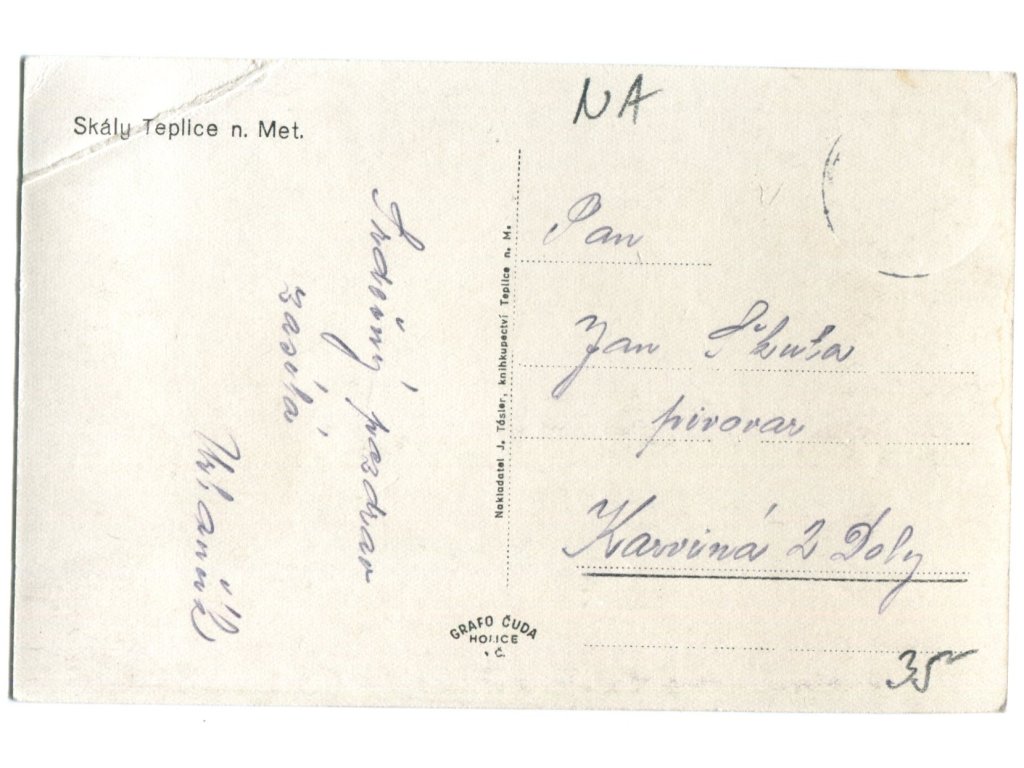 Skály Teplice n. Met.
NA
Srdečný pozdrav
zasílá
Pan
Jan Škuta
pivovar
Karviná 2 Doly
Nakladatel J. Tásler, knihkupectví Teplice n. M.
GRAFO ČUDA
HOLICE
v Č.
35